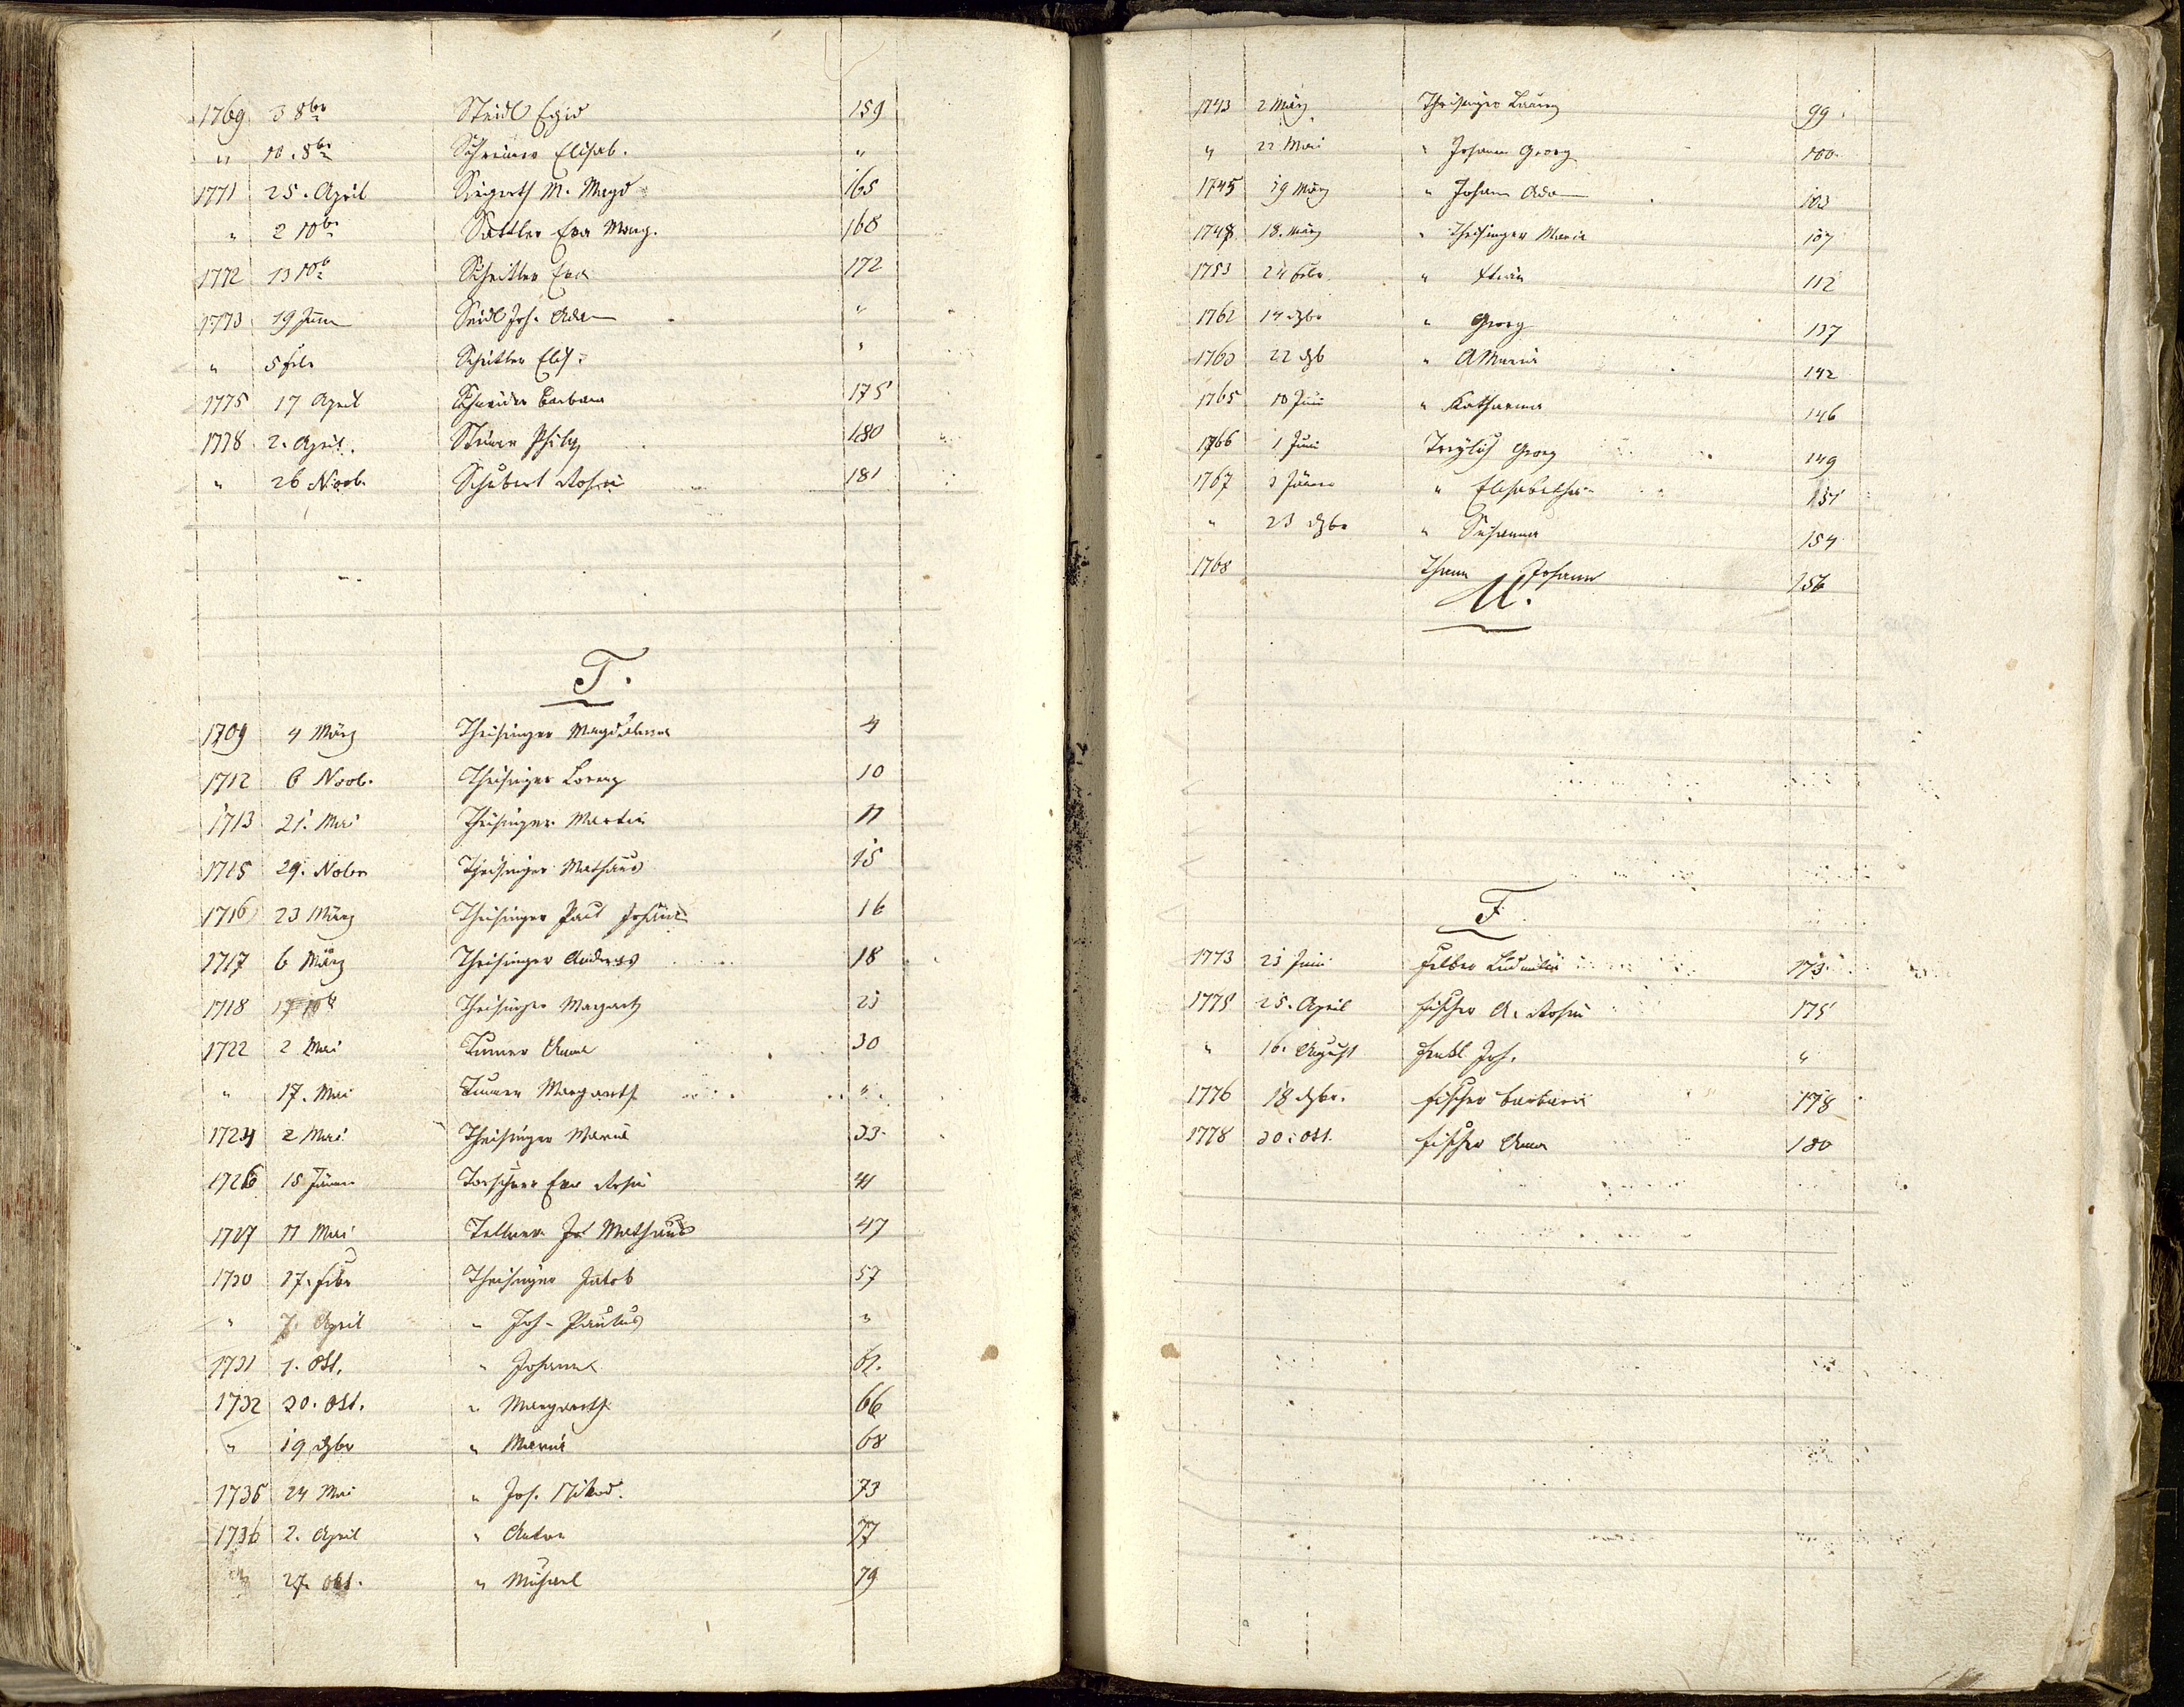 1769 3 8br Steidl Egid 159
" 10. 8br Schreiner Elisab. "
1771 25. April Siegerth M. Magd 165
" 2 10br Sattler Eva Marg. 168
1772 13 10b Schettler Eva 172
1773 19 Juni Seidl Joh. Adam "
" 5 Febr Schettler Elis. "
1775 17 April Schneider Barbara 175
1778 2. April Steiner Philipp 180
" 26 Novb. Schubert Rosin 181
T.
1709 4 März Theisinger Magdalena 4
1712 6 Novb. Theisinger Lorenz 10
1713 21. Mai Theisinger Martin 11
1715 29. Nobr Theisinger Mathäus 15
1716 23 März Theisinger Paul Johann 16
1717 6 März Theisinger Andreas 18
1718 17 10b Theisinger Margareth 23
1722 2 Mai Turner Anna 30
" 17. Mai Turner Margareth "
1724 2 Mai Theisinger Maria 33
1726 15 Jäner Eva Rosin 41
1727 11 Mai Mathäus 47
1730 17. Febr Theisinger Jakob 57
" 7. April " Joh. Paulus "
1731 1. Okt. " Johann 61.
1732 30. Okt. " Margareth 66
" 19 Dzbr " Maria 68
1735 24 Mai " Joh. 73
1736 2. April " Anton 77
" 27. Okt. " Michael 79
1743 2 März Theisinger Lorenz 99
" 22 Mai " Johann Georg 100
1745 19 März " Johann Adam 103
1748 18. März " Theisinger Maria 107
1753 24 Febr. " 112
1762 14 Dzbr " Georg 137
1763 22 Dzb " A Maria 142
1765 10 Juni " Katharina 146
1766 1 Juni Georg 149
1767 3 Jäner " Elisabetha 151
" 23 Dzbr " Susanna 154
1768 Thum Johann 156
U.
F
1773 23 Juni Felber Ludmilla 173
1775 25. April Fischer A. Rosin 175
" 16. August Joh. "
1776 18 Dzbr. Fischer Barbara 178
1778 30. Okt. Fischer Anna 180